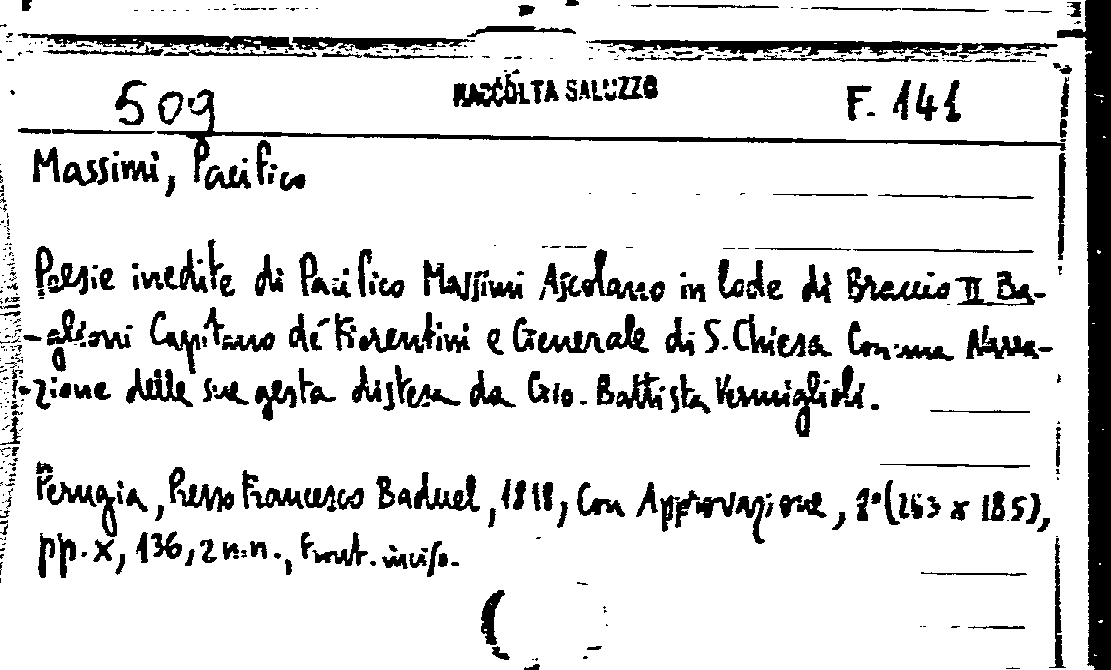 509 RACCOLTA SALUZZO F. 141
Massimi, Pacifico
Poesie inedite di Pacifico Massimi Ascolano in lode di Braccio II Ba-
-glioni Capitano de' Fiorentini e Generale di S. Chiesa Con una Narra-
-zione delle sue gesta distesa da Gio. Battista Vermiglioli.
Perugia, Presso Francesco Baduel, 1818, Con Approvazione, 8° (263 x 185),
pp. X, 136, 2 n.n., Front. inciso.